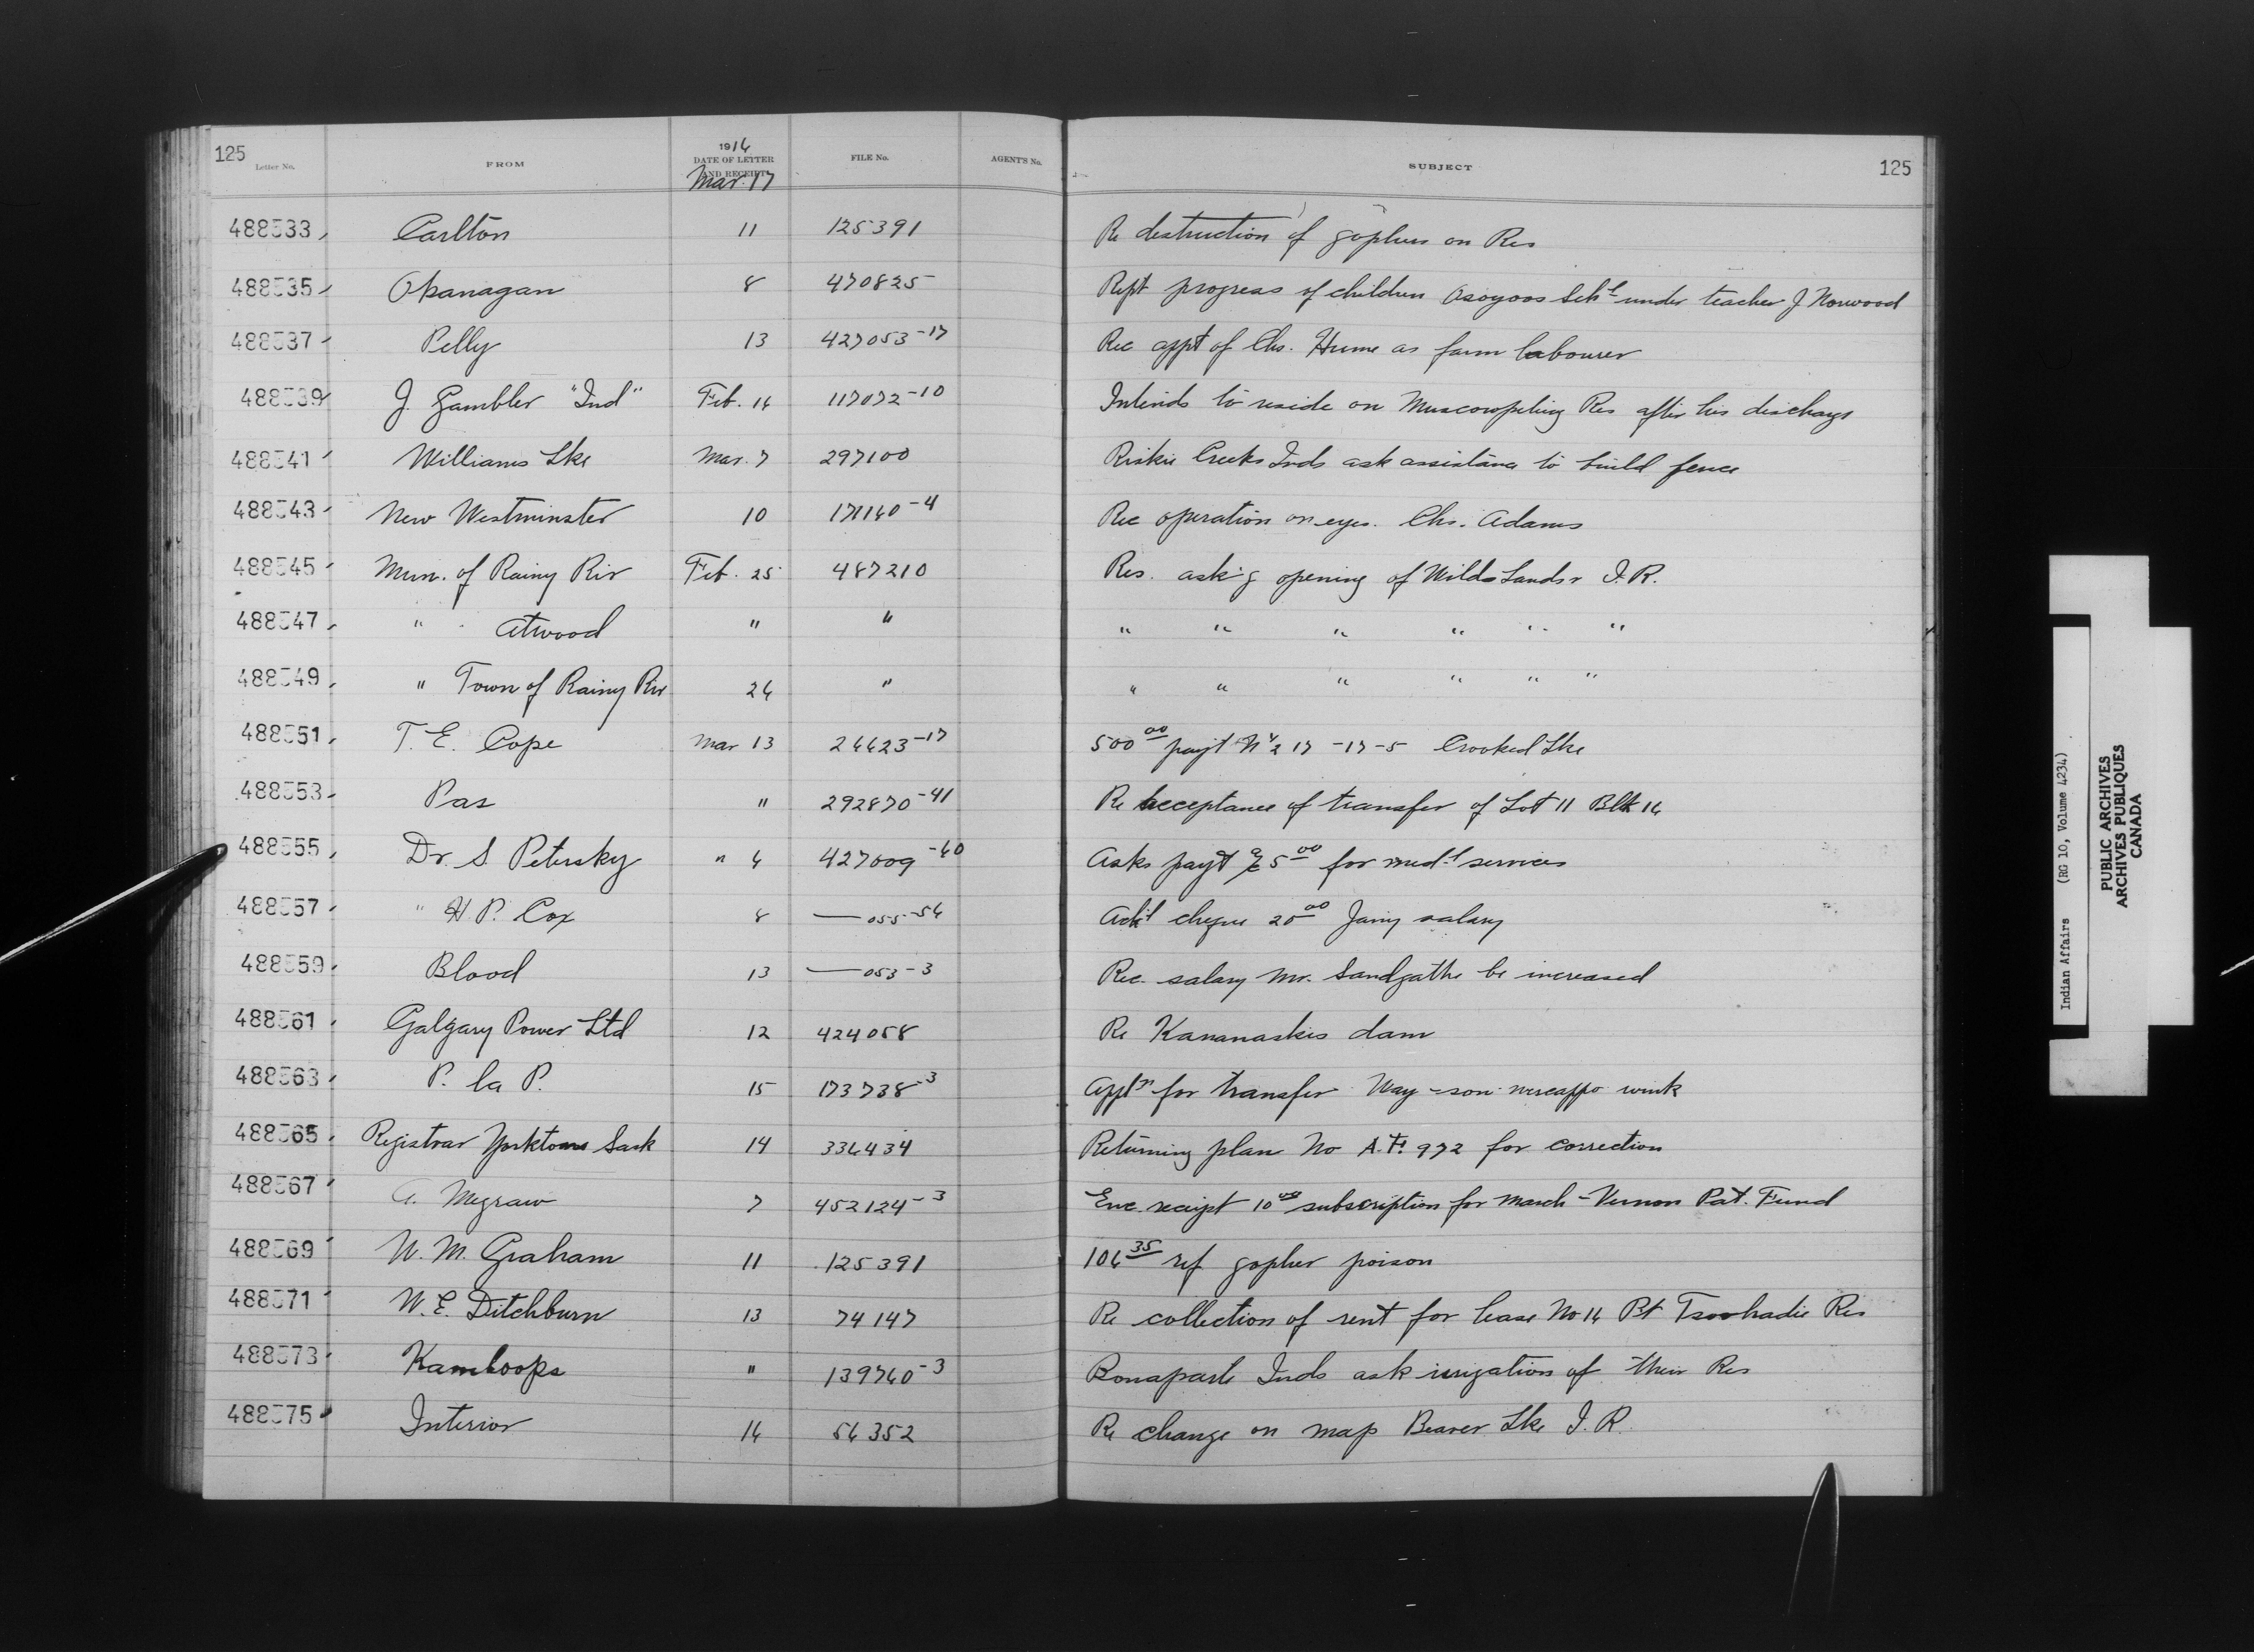 125 1916 125
Letter No. FROM DATE OF LETTER AND RECEIPT FILE No. AGENT'S No. SUBJECT
Mar. 17
488533 Carlton 11 125391 Re destruction of gophers on Res
488535 Okanagan 8 470825 Rept progress of children Osoyoos Schl under teacher J Norwood
488537 Pelly 13 427053-17 Rec appt of Chs. Hume as farm labourer
488539 J. Gambler "Ind" Feb. 16 117072-10 Intends to reside on Muscowpeting Res after his discharge
488541 Williams Lke Mar. 7 297100 Riskie Creek Inds ask assistance to build fence
488543 New Westminster 10 171140-4 Rec operation on eyes. Chs. Adams
488545 Mun. of Rainy Riv Feb. 25 487210 Res. ask'g opening of Wild Lands I.R.
488547 " Atwood " " " " " " " "
488549 " Town of Rainy Riv 26 " " " " " " "
488551 T. E. Cope Mar 13 26623-17 500 00 payt N½ 17-17-5 Crooked Lke
488553 Pas " 292870-41 Re acceptance of transfer of Lot 11 Blk 16
488555 Dr. S Petersky " 6 427009-60 Asks payt 5 00 for med-l services
488557 " H. P. Cox 8 —055-56 Ack'l cheque 20 00 Jan'y salary
488559 Blood 13 —053-3 Rec. salary Mr. Sandgathe be increased
488561 Calgary Power Ltd 12 424058 Re Kananaskis dam
488563 P. la P. 15 173738-3 Appln for transfer Way-son
488565 Registrar Yorkton Sask 14 336434 Returning plan No A.F. 972 for correction
488567 A. Megraw 7 452124-3 Enc. receipt 10 00 subscription for March - Vernon Pat. Fund
488569 W. M. Graham 11 125391 106 35 ref gopher poison
488571 W. E. Ditchburn 13 74147 Re collection of rent for lease No 16 Pt Tsoohadie Res
488573 Kamloops " 139760-3 Bonaparte Inds ask irrigation of their Res
488575 Interior 16 56352 Re change on map Beaver Lke I.R.
Indian Affairs (RG 10, Volume 4234)
PUBLIC ARCHIVES
ARCHIVES PUBLIQUES
CANADA